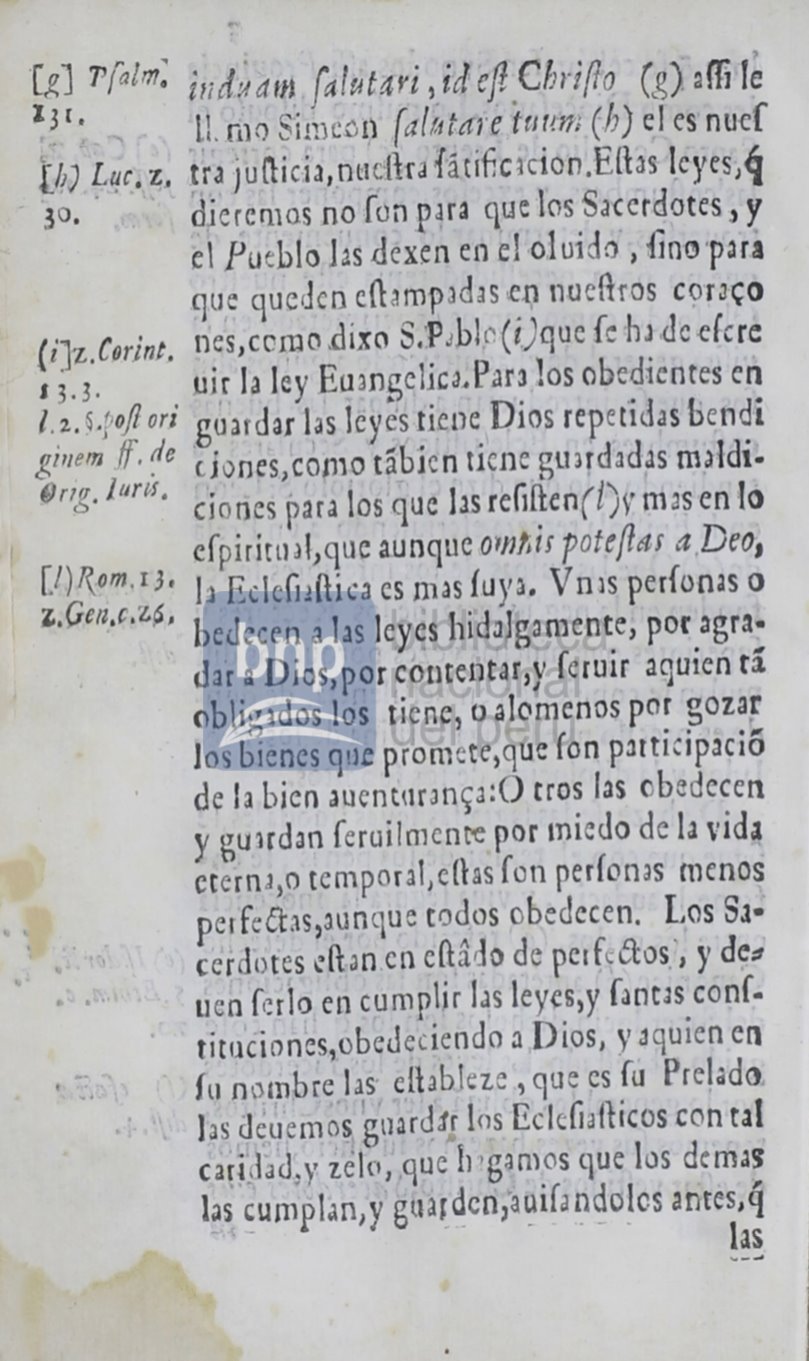 [g] Psalm.
131.
[h) Luc. 2.
30.
(i]2. Corint.
13.3.
l.2.§.post ori
ginem ff. de
Orig. Iuris.
[l) Rom. 13.
2. Gen. c. 26.
induam ſalutari, id eſt Chriſto (g) aſſi le
ll. mo Simeon ſalutare tuum (h) el es nueſ
tra juſticia, nueſtra ſãtificacion. Eſtas leyes, q́
dieremos no ſon para que los Sacerdotes, y
el Pueblo las dexen en el oluido, ſino para
que queden eſtampadas en nueſtros coraço
nes, como dixo S. Pablo (i) que ſe ha de eſcre
uir la ley Euangelica. Para los obedientes en
guardar las leyes tiene Dios repetidas bendi
ciones, como tãbien tiene guardadas maldi-
ciones para los que las reſiſten (l) y mas en lo
eſpiritual, que aunque omnis poteſtas a Deo,
la Ecleſiaſtica es mas ſuya. Vnas perſonas o
bedecen a las leyes hidalgamente, por agra-
dar a Dios, por contentar, y ſeruir aquien tã
obligados los tiene, o alomenos por gozar
los bienes que promete, que ſon participaciõ
de la bien auenturança: O tros las obedecen
y guardan ſeruilmente por miedo de la vida
eterna, o temporal, eſtas ſon perſonas menos
perfectas, aunque todos obedecen. Los Sa-
cerdotes eſtan en eſtâdo de perfectos, y de-
uen ſerlo en cumplir las leyes, y ſantas conſ-
tituciones, obedeciendo a Dios, y aquien en
ſu nombre las eſtableze, que es ſu Prelado
las deuemos guardar los Ecleſiaſticos con tal
caridad, y zelo, que hagamos que los demas
las cumplan, y guarden, auiſandoles antes, q́
las
bnp
biblioteca
nacional
del perú